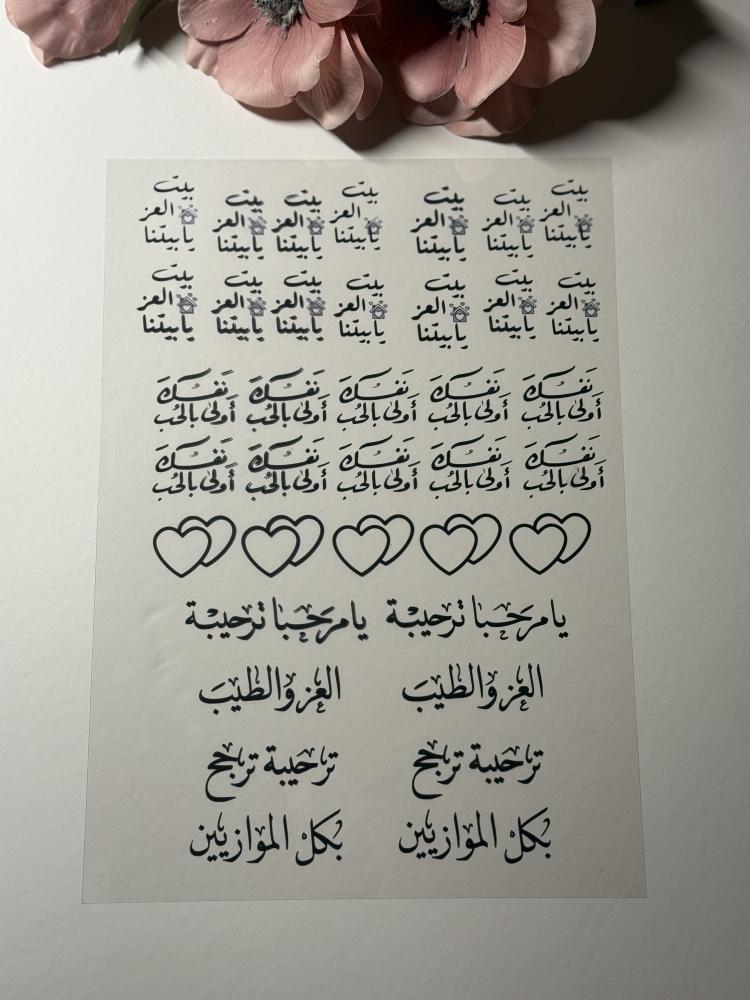 بيت
العز
يابيتنا
بيت
العز
يابيتنا
بيت
العز
يابيتنا
بيت
العز
يابيتنا
بيت
العز
يابيتنا
بيت
العز
يابيتنا
بيت
العز
يابيتنا
بيت
العز
يابيتنا
بيت
العز
يابيتنا
بيت
العز
يابيتنا
بيت
العز
يابيتنا
بيت
العز
يابيتنا
بيت
العز
يابيتنا
بيت
العز
يابيتنا
نَفسك
أولى بالحُب
نَفسك
أولى بالحُب
نَفسك
أولى بالحُب
نَفسك
أولى بالحُب
نَفسك
أولى بالحُب
نَفسك
أولى بالحُب
نَفسك
أولى بالحُب
نَفسك
أولى بالحُب
نَفسك
أولى بالحُب
نَفسك
أولى بالحُب
يامرحبا ترحيبة يامرحبا ترحيبة
العز والطيب العز والطيب
ترحيبة ترجح ترحيبة ترجح
بكل الموازين بكل الموازين